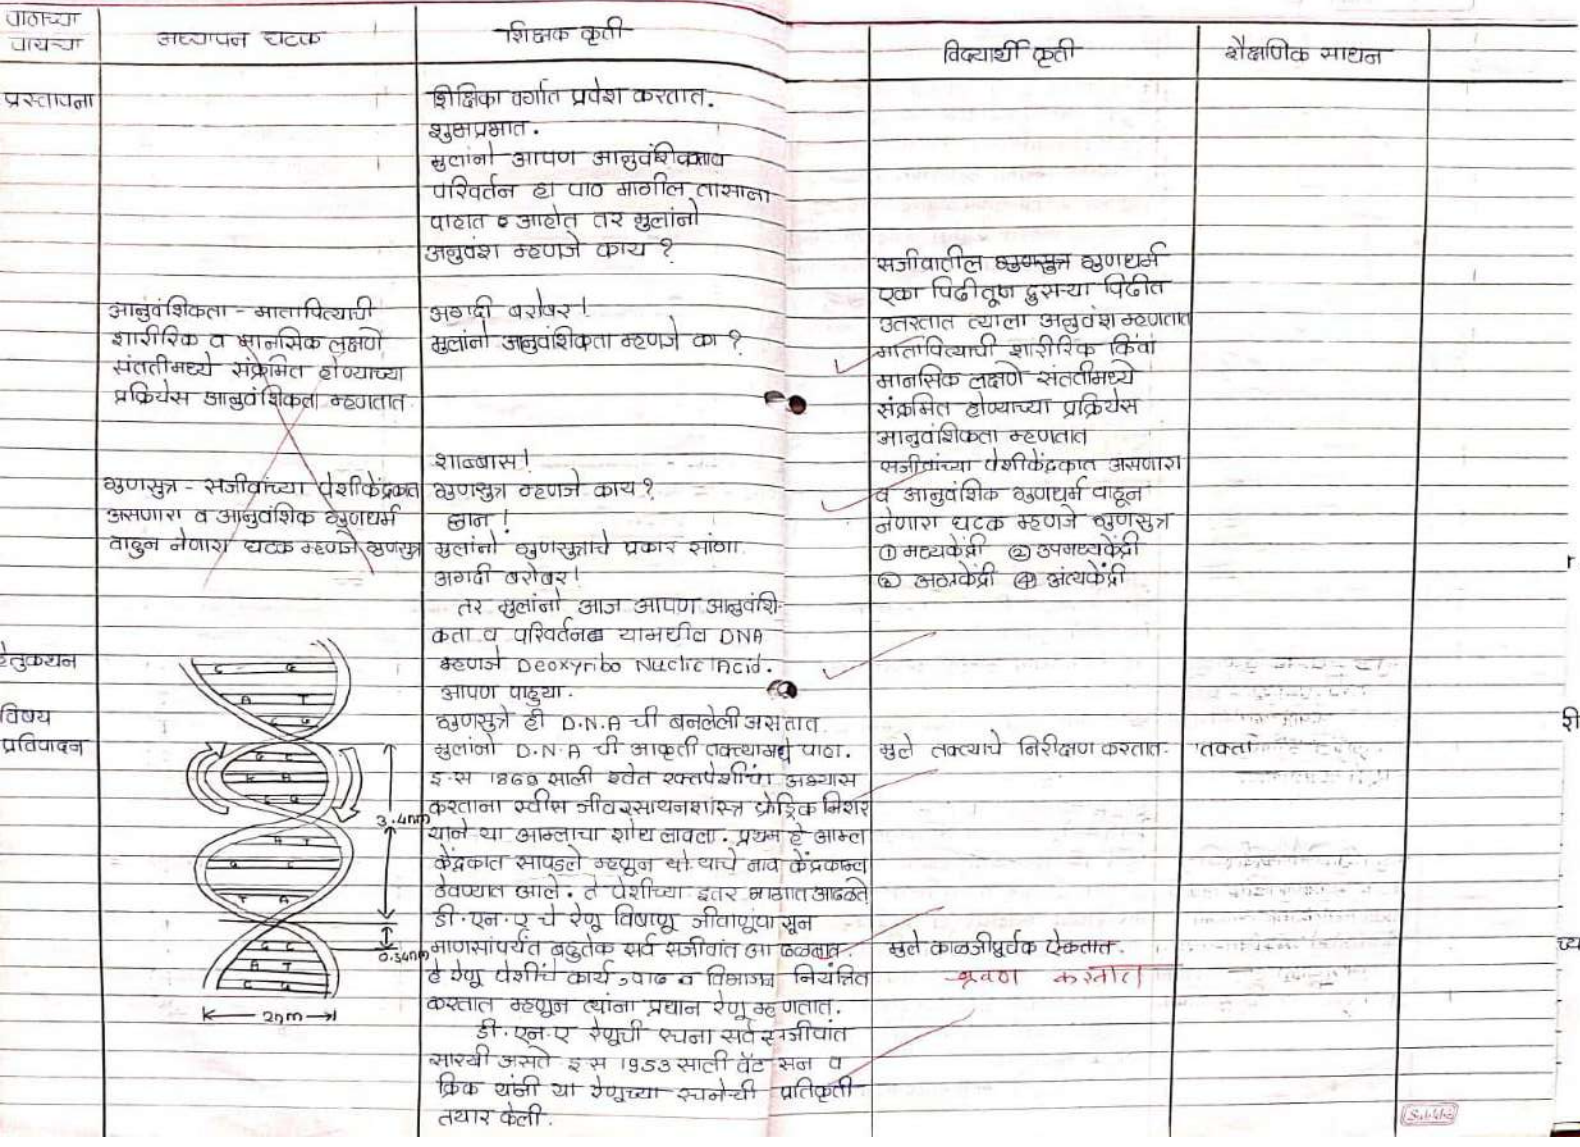 पाठाच्या
पायऱ्या
अध्यापन घटक
शिक्षक कृती
विद्यार्थी कृती
शैक्षणिक साधन
प्रस्तावना
शिक्षिका वर्गात प्रवेश करतात.
शुभप्रभात.
मुलांनो आपण आनुवंशिकताव
परिवर्तन हा पाठ मागील तासाला
पाहात आहोत तर मुलांनो
अनुवंश म्हणजे काय ?
सजीवातील गुणसुत्र गुणधर्म
एका पिढीतून दुसऱ्या पिढीत
उतरतात त्याला अनुवंश म्हणतात
आनुवंशिकता - मातापित्याची
शारीरिक व मानसिक लक्षणे
संततीमध्ये संक्रमित होण्याच्या
प्रक्रियेस आनुवंशिकता म्हणतात.
अगदी बरोबर !
मुलांनो अनुवंशिकता म्हणजे का ?
मातापित्याची शारीरिक किंवा
मानसिक लक्षणे संततीमध्ये
संक्रमित होण्याच्या प्रक्रियेस
आनुवंशिकता म्हणतात
शाब्बास !
गुणसुत्र - सजीवांच्या पेशीकेंद्रकात
असणारा व आनुवंशिक गुणधर्म
वाहुन नेणारा घटक म्हणजे गुणसुत्र
गुणसुत्र म्हणजे काय ?
छान !
मुलांनो गुणसुत्राचे प्रकार सांगा.
अगदी बरोबर !
सजीवांच्या पेशीकेंद्रकात असणारा
व आनुवंशिक गुणधर्म वाहून
नेणारा घटक म्हणजे गुणसुत्र
① मध्यकेंद्री ② उपमध्यकेंद्री
③ अग्रकेंद्री ④ अंत्यकेंद्री
तर मुलांनो आज आपण आनुवंशि-
कता व परिवर्तन यामधील DNA
म्हणजे Deoxyribo Nuclic Acid.
आपण पाहुया.
हेतुकथन
विषय
प्रतिपादन
गुणसुत्रे ही D.N.A ची बनलेली असतात.
मुलांनो D.N.A ची आकृती तक्त्यामधे पाहा.
इ.स 1869 साली श्वेत रक्तपेशींचा अभ्यास
करताना स्वीस जीवरसायनशास्त्र फ्रेड्रिक मिशर
याने या आम्लाचा शोध लावला. प्रथम हे आम्ल
केंद्रकात सापडले म्हणून याचे नाव केंद्रकाम्ल
ठेवण्यात आले. ते पेशीच्या इतर भागात आढळते
डी.एन.ए चे रेणू विषाणू जीवाणूंपासून
माणसांपर्यंत बहुतेक सर्व सजीवांत आढळतात.
हे रेणू पेशींचे कार्य, वाढ व विभाजन नियंत्रित
करतात म्हणून त्यांना प्रधान रेणू म्हणतात.
डी.एन.ए रेणूची रचना सर्व सजीवांत
सारखी असते इ स 1953 साली वॅटसन व
क्रिक यांनी या रेणूच्या रचनेची प्रतिकृती
तयार केली.
मुले तक्त्याचे निरीक्षण करतात.
तक्ता
मुले काळजीपूर्वक ऐकतात.
श्रवण करतात
C G
A T
C G
G C
A
C G
3.4nm
A T
G C
T A
0.34nm
G C
A T
C G
2nm